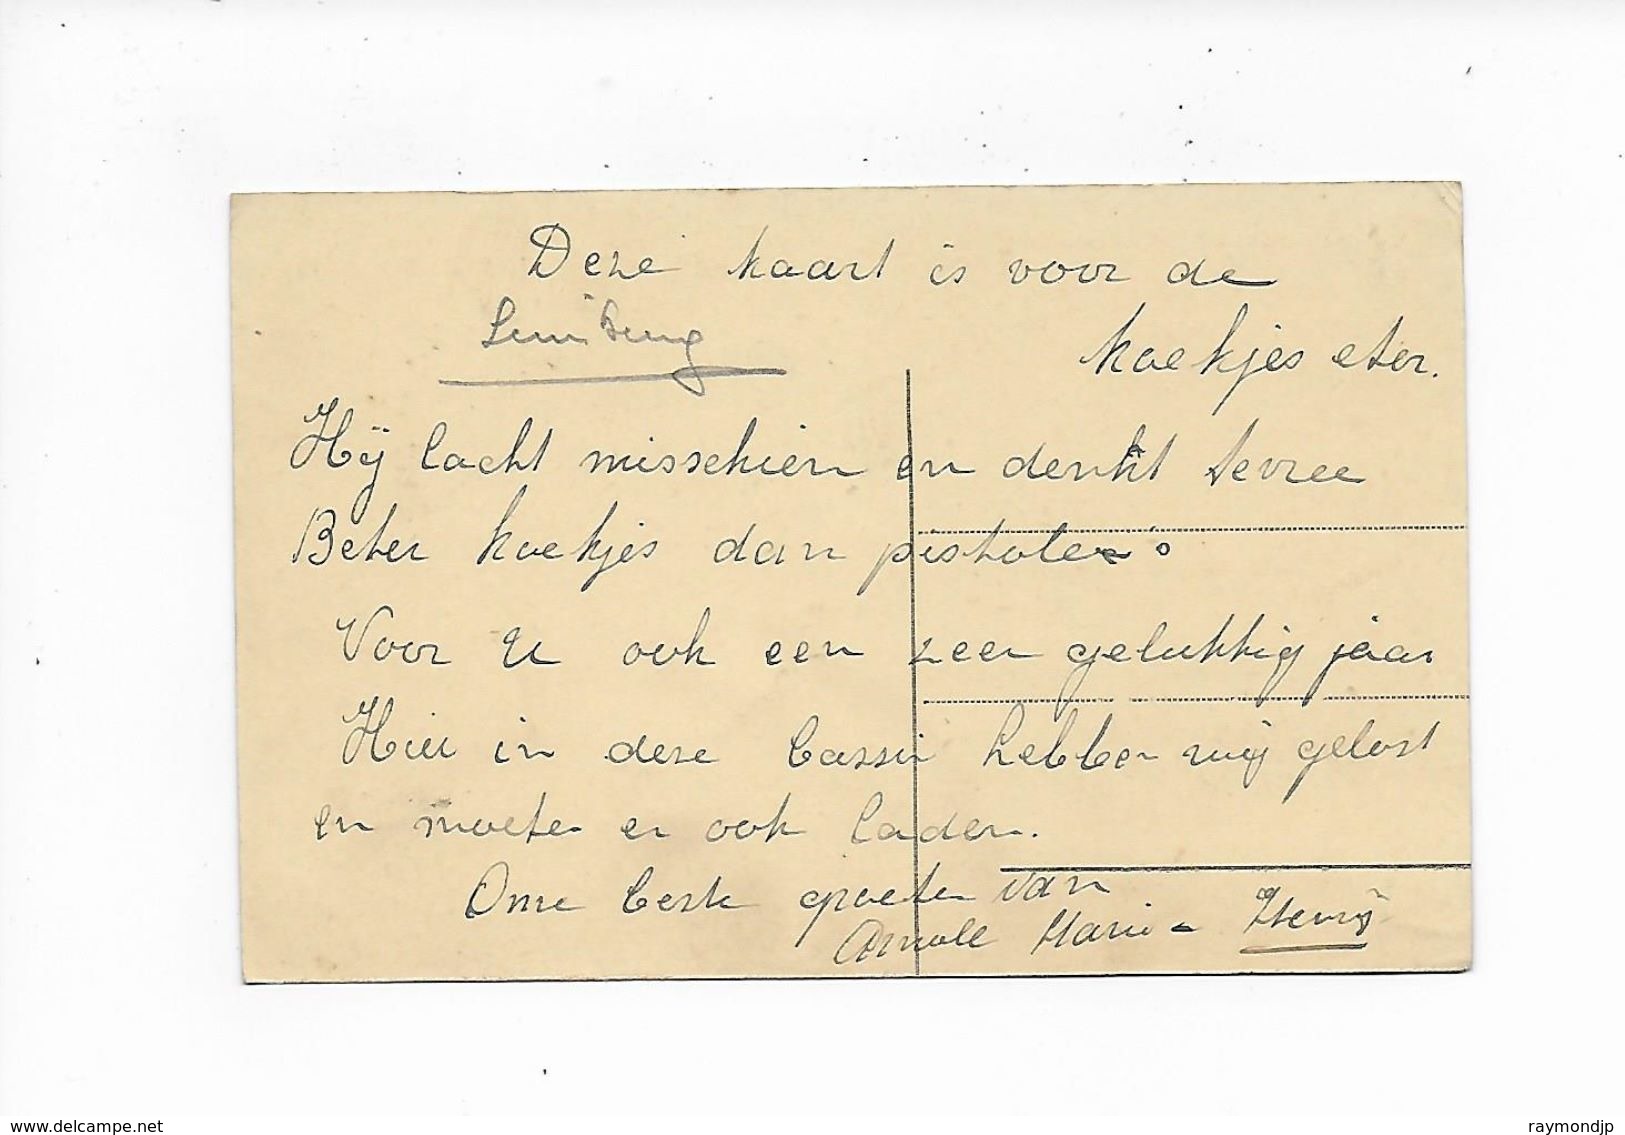 Deze kaart is voor de
Limburg
koekjes eter.
Hij lacht misschien en denkt tevree
Beter koekjes dan pistolen.
Voor U ook een zeer gelukkig jaar
Hier in deze bassin hebben wij gelost
en moeten er ook laden.
Onze beste groeten van
Marie - Henri
www.delcampe.net
raymondjp